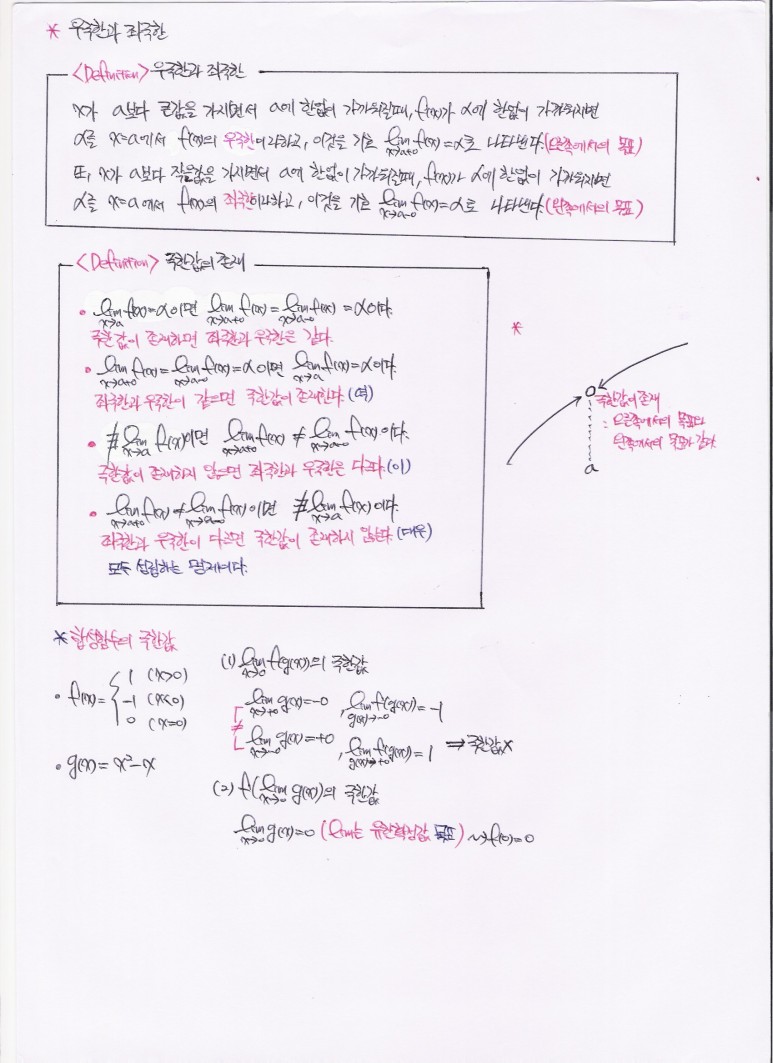 * 우극한과 좌극한
<Definition> 우극한과 좌극한
x가 a보다 큰값을 가지면서 a에 한없이 가까워질때, f(x)가 α에 한없이 가까워지면
α를 x=a에서 f(x)의 우극한이라하고, 이것을 기호 lim x→a+0 f(x)=α로 나타낸다. (오른쪽에서의 목표)
또, x가 a보다 작은값을 가지면서 a에 한없이 가까워질때, f(x)가 α에 한없이 가까워지면
α를 x=a에서 f(x)의 좌극한이라하고, 이것을 기호 lim x→a-0 f(x)=α로 나타낸다. (왼쪽에서의 목표)
<Definition> 극한값의 존재
• lim x→a f(x)=α이면 lim x→a+0 f(x)=lim x→a-0 f(x)=α이다.
극한값이 존재하면 좌극한과 우극한은 같다.
• lim x→a+0 f(x)=lim x→a-0 f(x)=α이면 lim x→a f(x)=α이다.
좌극한과 우극한이 같으면 극한값이 존재한다. (역)
• ∄ lim x→a f(x)이면 lim x→a+0 f(x)≠lim x→a-0 f(x)이다.
극한값이 존재하지 않으면 좌극한과 우극한은 다르다. (이)
• lim x→a+0 f(x)≠lim x→a-0 f(x)이면 ∄ lim x→a f(x)이다.
좌극한과 우극한이 다르면 극한값이 존재하지 않는다. (대우)
모두 성립하는 명제이다.
*
극한값이 존재
: 오른쪽에서의 목표와
왼쪽에서의 목표가 같다.
a
* 합성함수의 극한값
• f(x)= { 1 (x>0)
-1 (x<0)
0 (x=0)
• g(x)=x²-x
(1) lim x→0 f(g(x))의 극한값
lim x→+0 g(x)=-0, lim g(x)→-0 f(g(x))=-1
≠
lim x→-0 g(x)=+0, lim g(x)→+0 f(g(x))=1 ⇒ 극한값X
(2) f(lim x→0 g(x))의 극한값
lim x→0 g(x)=0 (lim는 유한확정값 목표) ⤳ f(0)=0